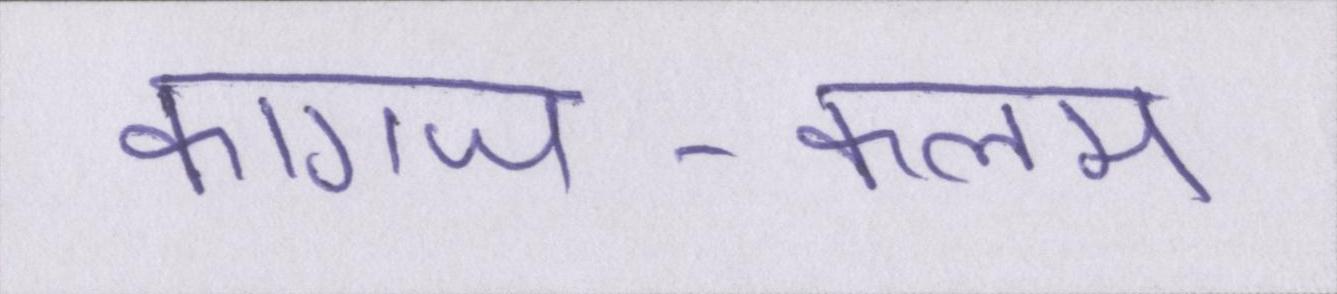 कागज - कलम